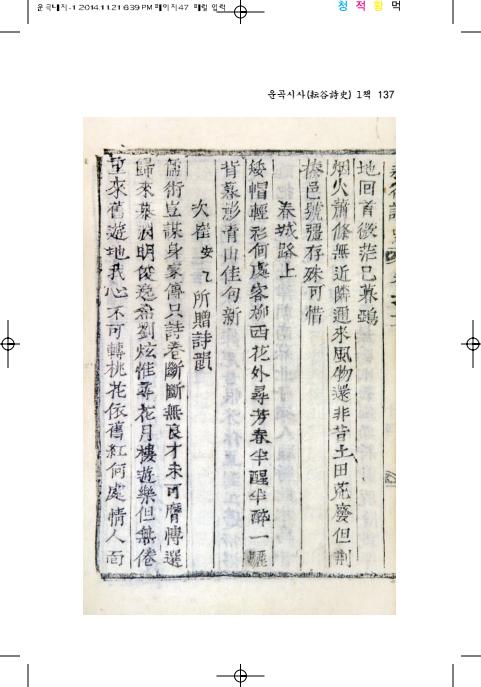 운곡대지-1 2014.11.21 6:39 PM 페이지47 매킬 입력
청 적 황 먹
운곡시사(耘谷詩史) 1책 137
地回首微茫已暮鵶
烟火蕭條無近隣邇來風物還非昔土田荒廢但荆
榛邑號彊存殊可惜
春城路上
矮帽輕衫何處客柳西花外尋芳春半醒半醉一驢
背暮影青山佳句新
次崔安乙所贈詩韻
儒術豈謀身家傳只詩卷斷斷無良才未可膺慱選
歸來慕淵明俊逸希劉炫惟尋花月樓遊樂但無倦
重來舊遊地我心不可轉桃花依舊紅何處情人面